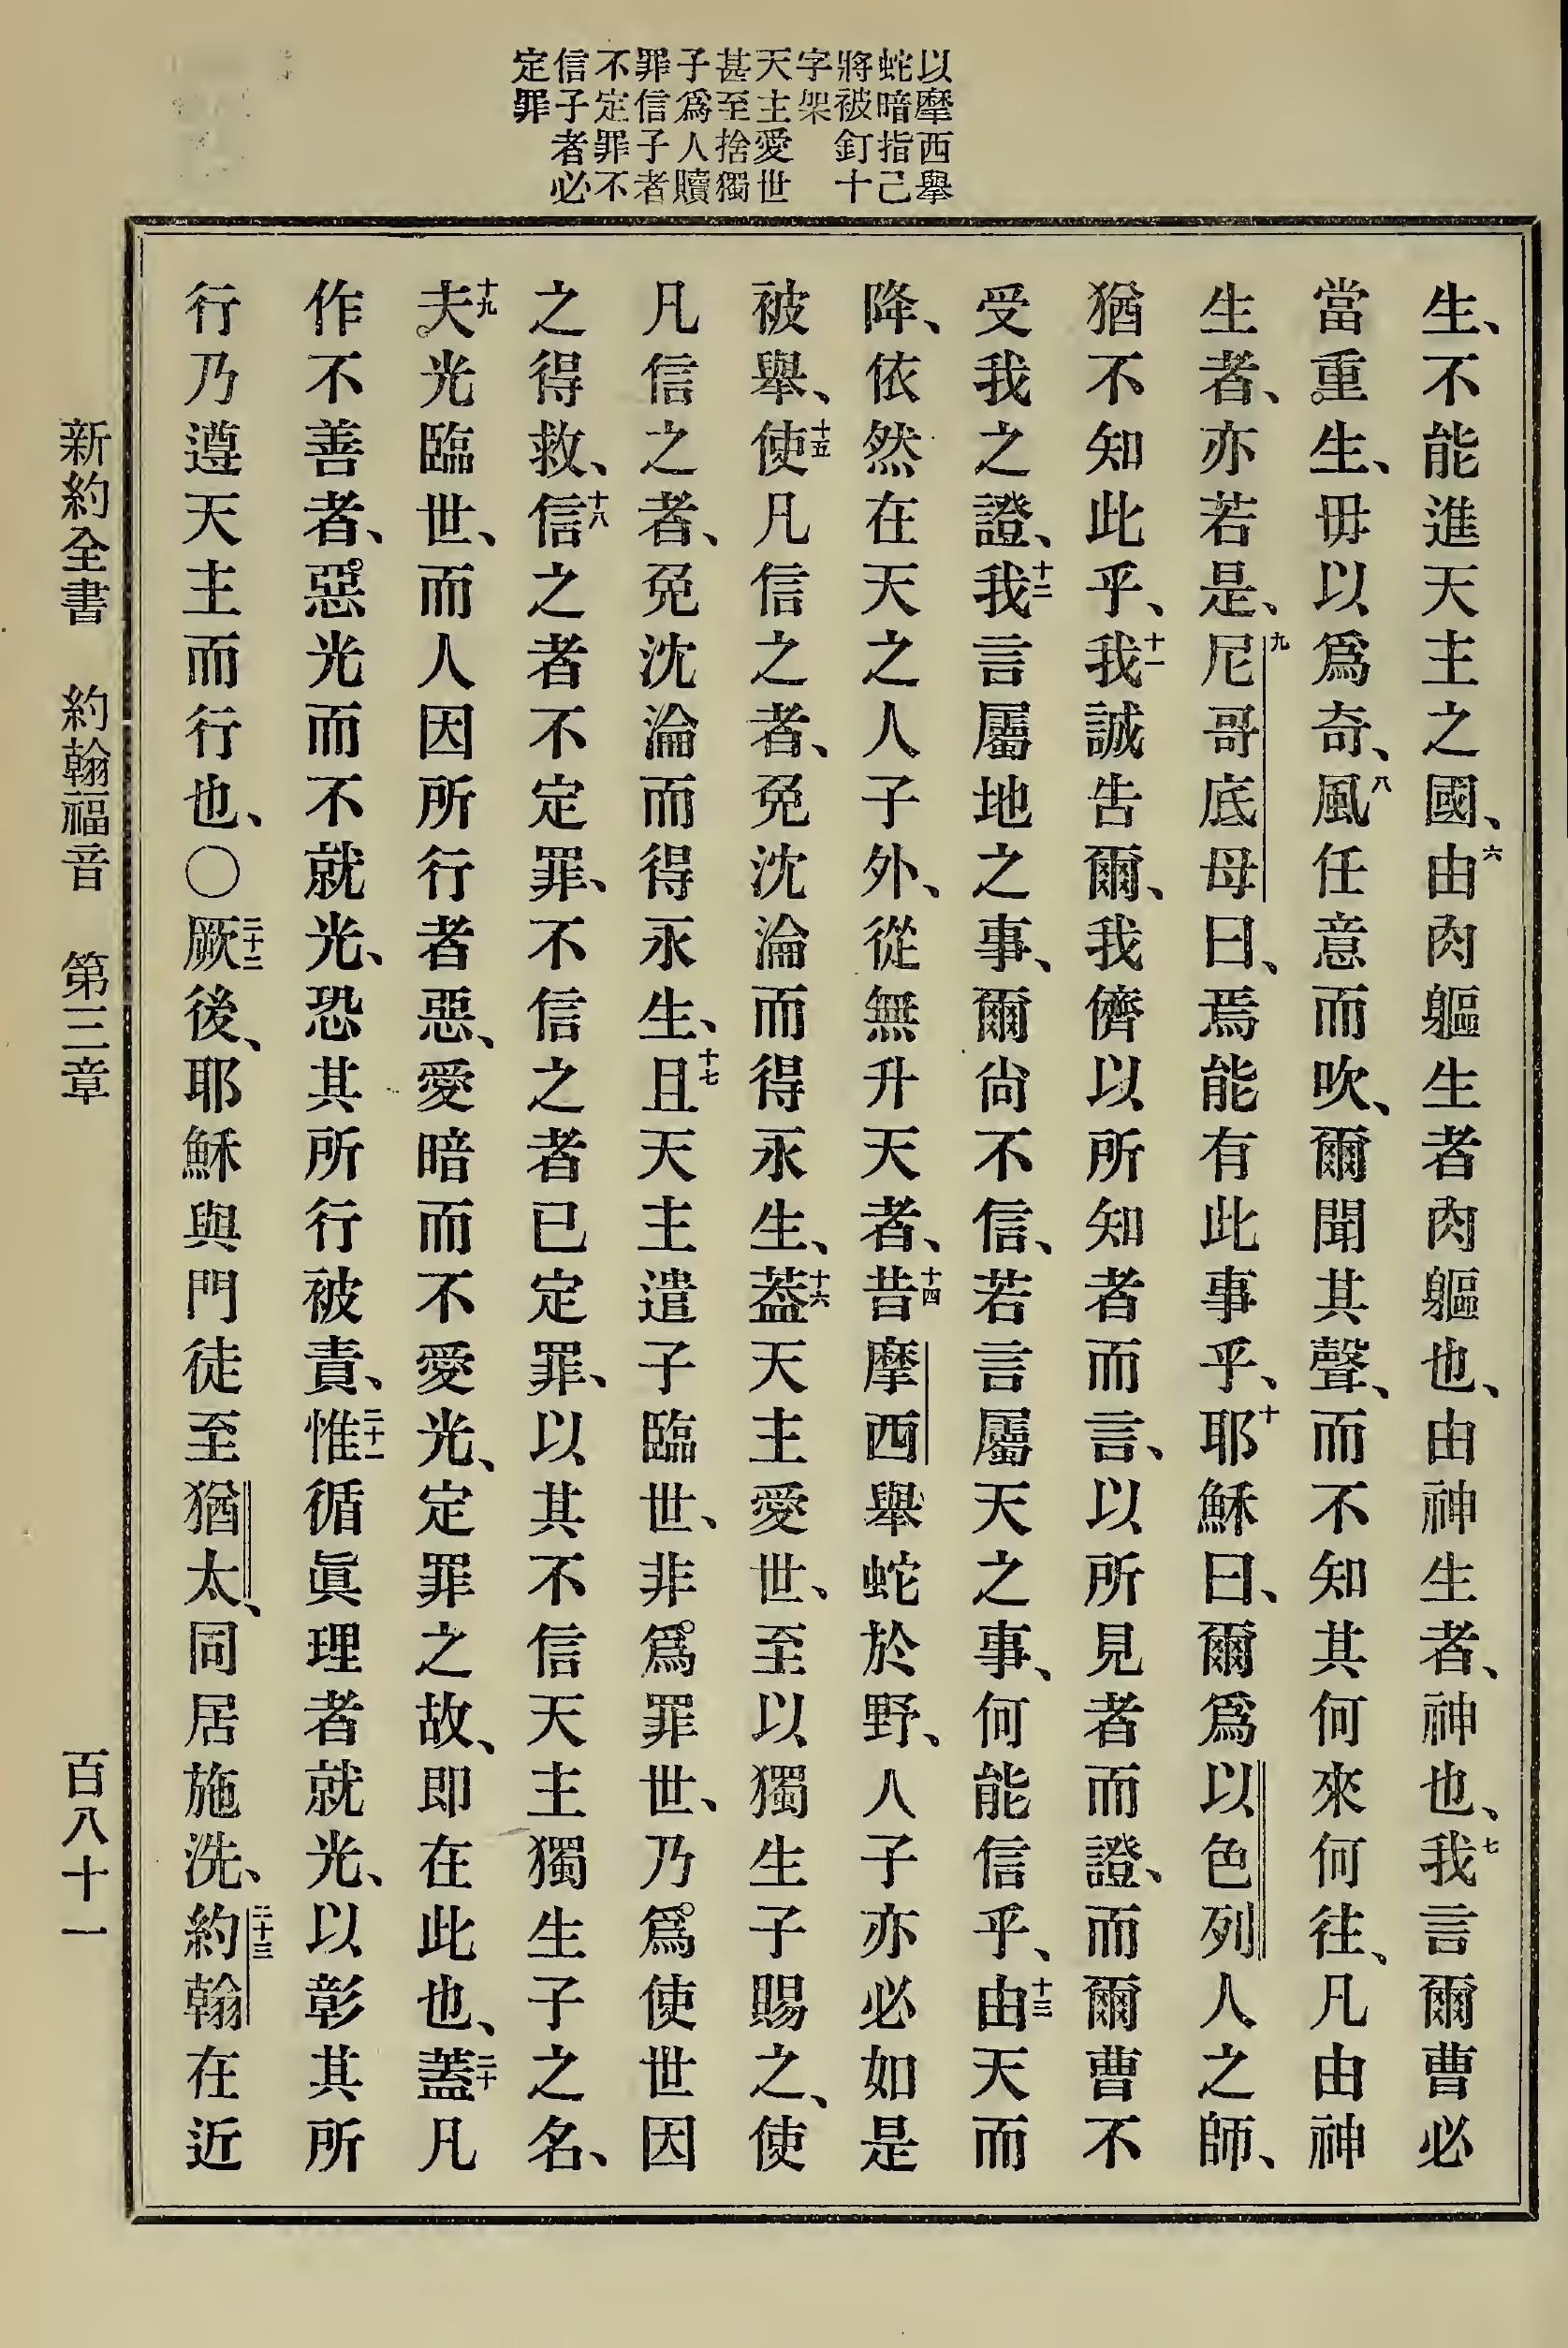 以摩西舉
蛇暗指己
將被釘十
字架
天主愛世
甚至捨獨
子爲人贖
罪信子者
不定罪不
信子者必
定罪
生、不能進天主之國、六由肉軀生者肉軀也、由神生者、神也、七我言爾曹必
當重。生、毋以爲奇、八風任意而吹、爾聞其聲、而不知其何來何往、凡由神
生者、亦若是、九尼哥底母曰、焉能有此事乎、十耶穌曰、爾爲以色列人之師、
猶不知此乎、十一我誠告爾、我儕以所知者而言、以所見者而證、而爾曹不
受我之證、十二我言屬地之事、爾尙不信、若言屬天之事、何能信乎、十三由天而
降、依然在天之人子外、從無升天者、十四昔摩西舉蛇於野、人子亦必如是
被舉、十五使凡信之者、免沈淪而得永生、十六葢天主愛世、至以獨生子賜之、使
凡信之者、免沈淪而得永生、十七且天主遣子臨世、非爲°罪世、乃爲°使世因
之得救、十八信之者不定罪、不信之者已定罪、以其不信天主獨生子之名、
十九夫。光臨世、而人因所行者惡、愛暗而不愛光、定罪之故、即在此也、二十蓋凡
作不善者、惡°光而不就光、恐其所行被責、二十一惟循眞理者就光、以彰其所
行乃遵天主而行也、〇二十二厥後、耶穌與門徒至猶太、同居施洗、二十三約翰在近
新約全書 約翰福音 第三章 百八十一